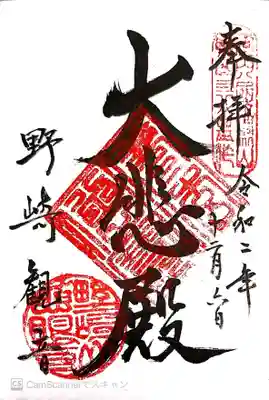 奉拝
令和二年
月六日
大悲殿
野崎觀音
CS CamScannerでスキャン